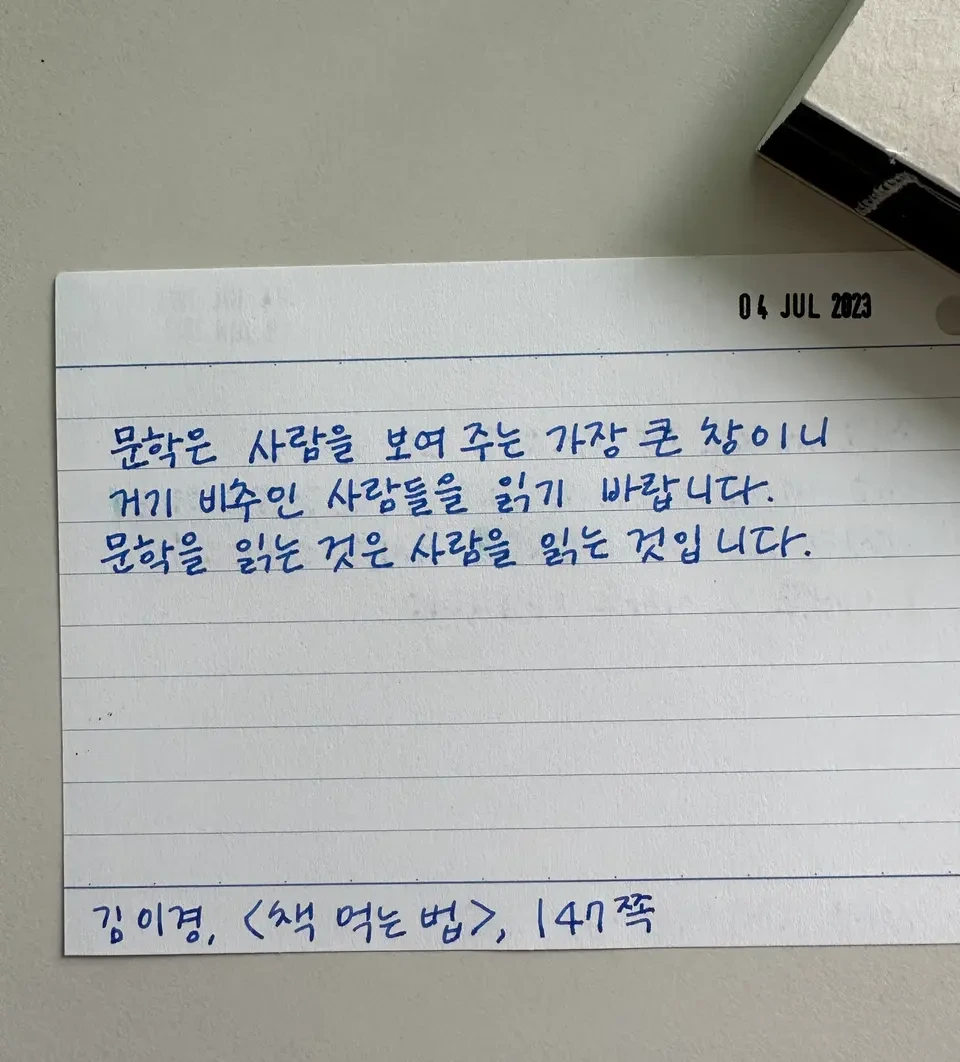 04 JUL 2023
문학은 사람을 보여 주는 가장 큰 창이니
거기 비추인 사람들을 읽기 바랍니다.
문학을 읽는 것은 사람을 읽는 것입니다.
김이경, <책 먹는 법>, 147쪽